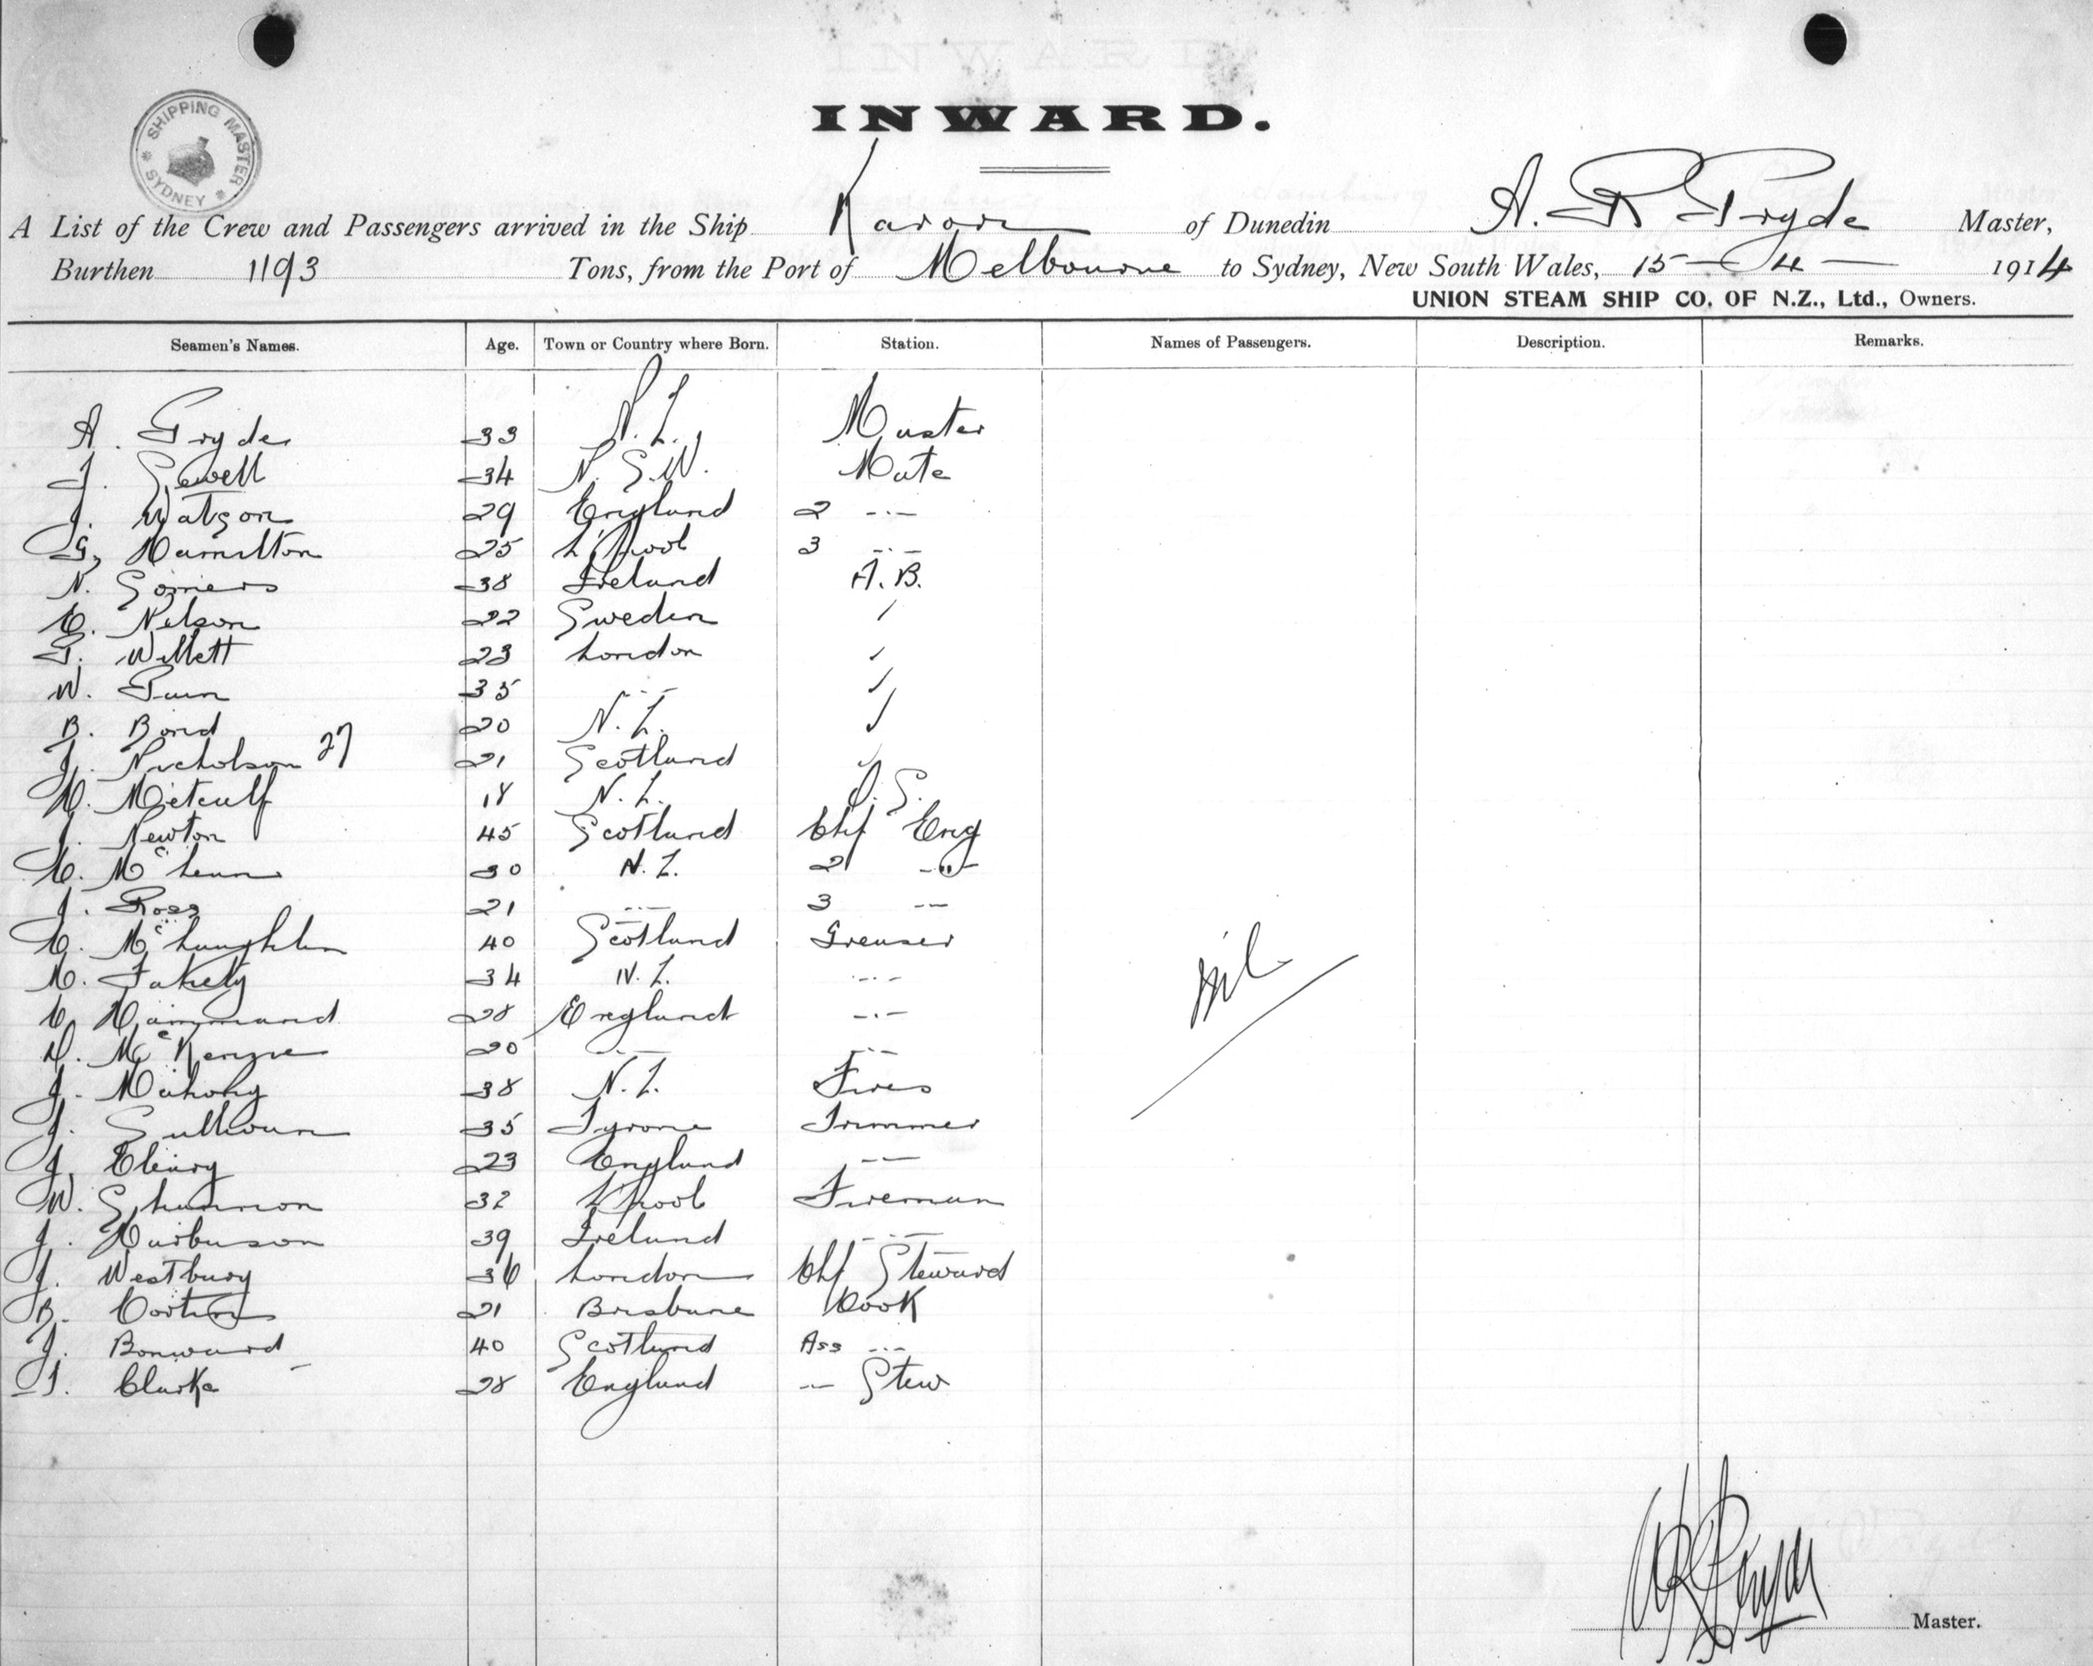 INWARD.
SHIPPING MASTER
SYDNEY
A List of the Crew and Passengers arrived in the Ship Karori of Dunedin A. R Pryde Master,
Burthen 1193 Tons, from the Port of Melbourne to Sydney, New South Wales, 15 - 4 - 1914
UNION STEAM SHIP CO. OF N.Z., Ltd., Owners.
Seamen's Names. Age. Town or Country where Born. Station. Names of Passengers. Description. Remarks.
A. Pryde 33 N.Z. Master
J. Sewell 34 N.S.W. Mate
J. Watson 29 England 2 -·-
G. Hamilton 25 L'pool 3 -·-
N. Somers 38 Ireland A.B.
C. Nelson 22 Sweden
T. Willett 23 London
W. 35 -·-
B. Bond 20 N.Z.
J. Nicholson 27 21 Scotland
H. Metcalf 18 N.Z. O.S.
J. Newton 45 Scotland Chf Eng
C. McLean 30 N.Z. 2 "
J. Ross 21 -·- 3 --
C. McLaughlin 40 Scotland Greaser
M. 34 N.Z. -·-
C Hammond 28 England -·-
D. McKenzie 20 -·- -·-
J. Mahony 38 N.Z. Fires
J. 35 Tyrone Trimmer
J. Cleary 23 England --
W. Shannon 32 L'pool Fireman
J. Harbison 39 Ireland -·-
J. Westbury 36 London Chf Steward
B. 21 Brisbane Cook
J. Bonward 40 Scotland Ass -·-
Clarke 28 England -·- Stew
Nil
Master.